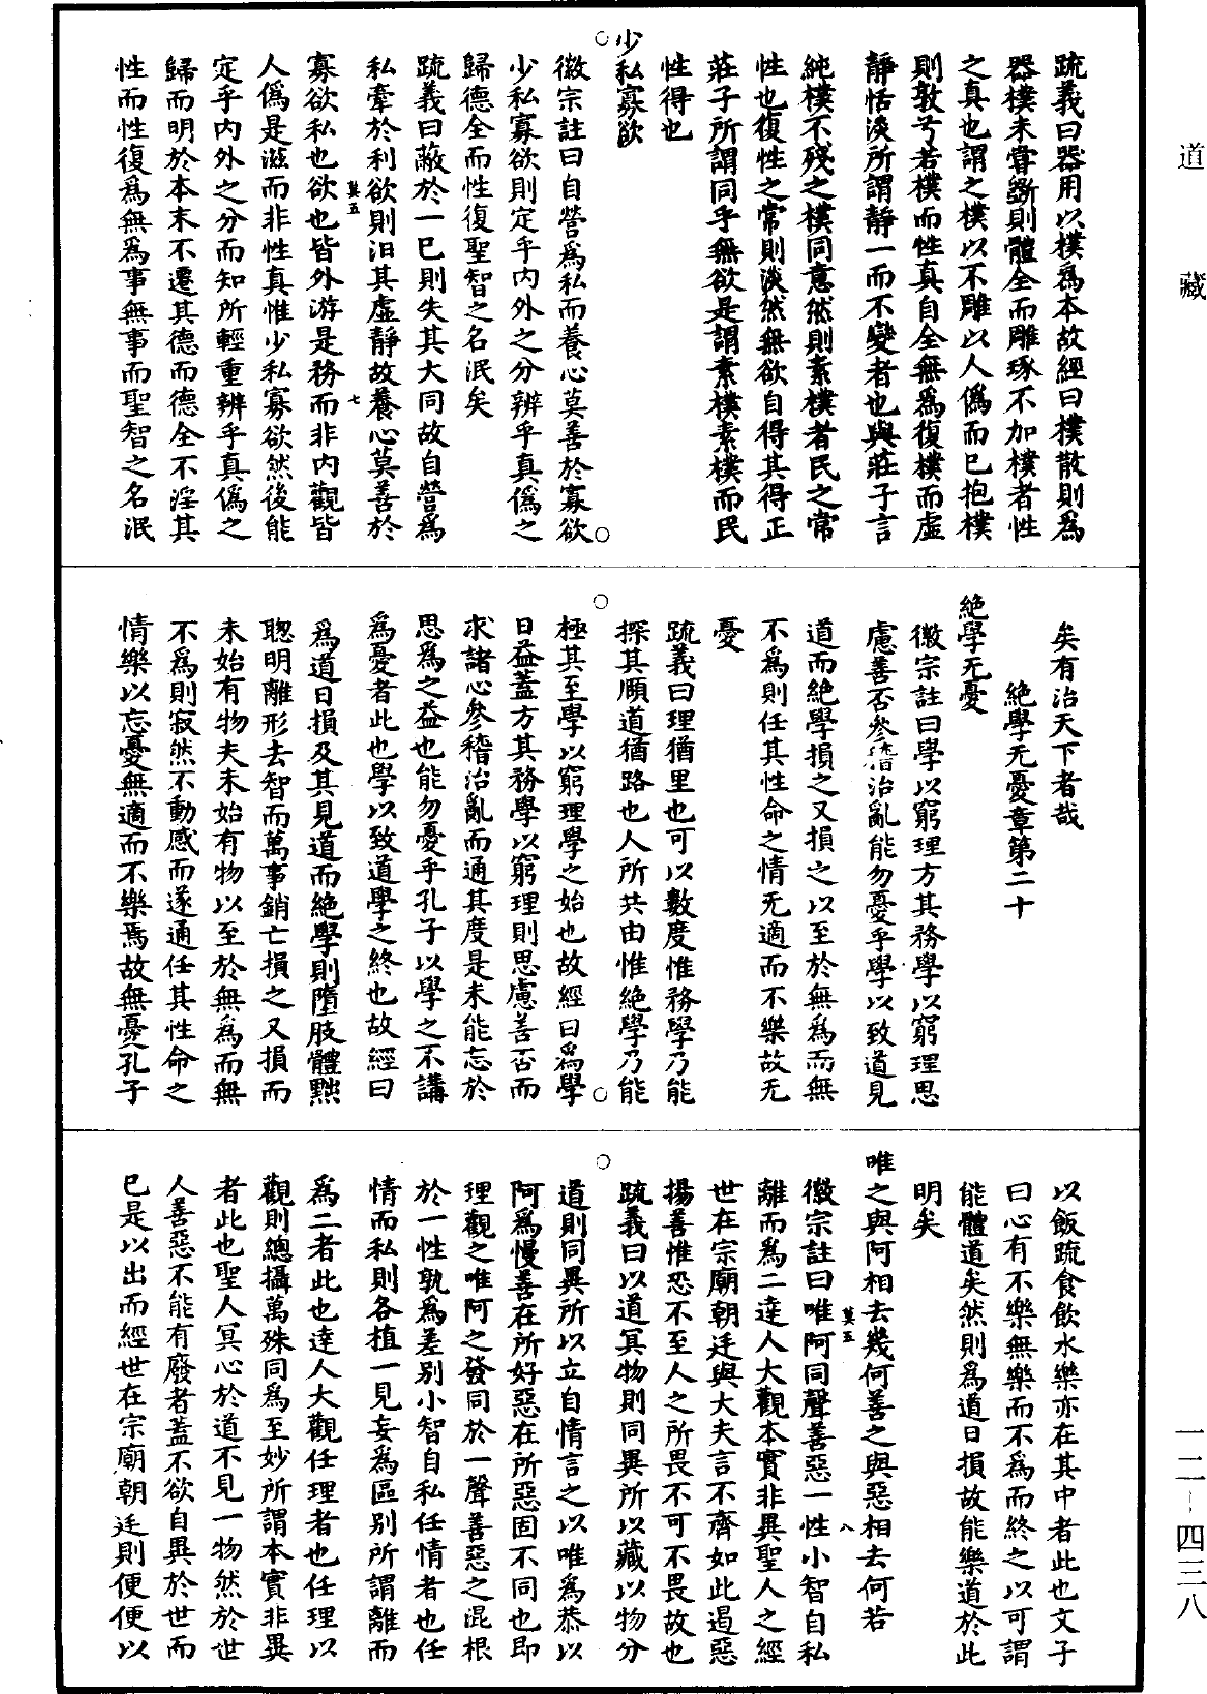 道藏
疏義曰器用以樸爲本故經曰樸散則爲
器樸未嘗斲則體全而雕琢不加樸者性
之真也謂之樸以不雕以人僞而已抱樸
則敦兮若樸而性真自全無爲復樸而虛
靜恬淡所謂靜一而不變者也與莊子言
純樸不殘之樸同意然則素樸者民之常
性也復性之常則淡然無欲自得其得正
莊子所謂同乎無欲是謂素樸素樸而民
性得也
少私寡欲
徽宗註曰自營爲私而養心莫善於寡欲
少私寡欲則定乎內外之分辨乎真僞之
歸德全而性復聖智之名泯矣
疏義曰蔽於一已則失其大同故自營爲
私牽於利欲則汩其虛靜故養心莫善於
莫五 七
寡欲私也欲也皆外游是務而非內觀皆
人僞是滋而非性真惟少私寡欲然後能
定乎內外之分而知所輕重辨乎真僞之
歸而明於本末不遷其德而德全不淫其
性而性復爲無爲事無事而聖智之名泯
矣有治天下者哉
絶學无憂章第二十
絶學无憂
徽宗註曰學以窮理方其務學以窮理思
慮善否參稽治亂能勿憂乎學以致道見
道而絶學損之又損之以至於無爲而無
不爲則任其性命之情无適而不樂故无
憂
疏義曰理猶里也可以數度惟務學乃能
探其順道猶路也人所共由惟絶學乃能
極其至學以窮理學之始也故經曰爲學
日益蓋方其務學以窮理則思慮善否而
求諸心參稽治亂而通其度是未能忘於
思爲之益也能勿憂乎孔子以學之不講
爲憂者此也學以致道學之終也故經曰
爲道日損及其見道而絶學則墮肢體黜
聰明離形去智而萬事銷亡損之又損而
未始有物夫未始有物以至於無爲而無
不爲則寂然不動感而遂通任其性命之
情樂以忘憂無適而不樂焉故無憂孔子
以飯疏食飲水樂亦在其中者此也文子
曰心有不樂無樂而不爲而終之以可謂
能體道矣然則爲道日損故能樂道於此
明矣
唯之與阿相去幾何善之與惡相去何若
莫五 八
徽宗註曰唯阿同聲善惡一性小智自私
離而爲二達人大觀本實非異聖人之經
世在宗廟朝廷與大夫言不齊如此遏惡
揚善惟恐不至人之所畏不可不畏故也
疏義曰以道冥物則同異所以藏以物分
道則同異所以立自情言之以唯爲恭以
阿爲慢善在所好惡在所惡固不同也即
理觀之唯阿之發同於一聲善惡之混根
於一性孰爲差別小智自私任情者也任
情而私則各植一見妄爲區別所謂離而
爲二者此也達人大觀任理者也任理以
觀則總攝萬殊同爲至妙所謂本實非異
者此也聖人冥心於道不見一物然於世
人善惡不能有廢者蓋不欲自異於世而
已是以出而經世在宗廟朝廷則便便以
一二—四三八